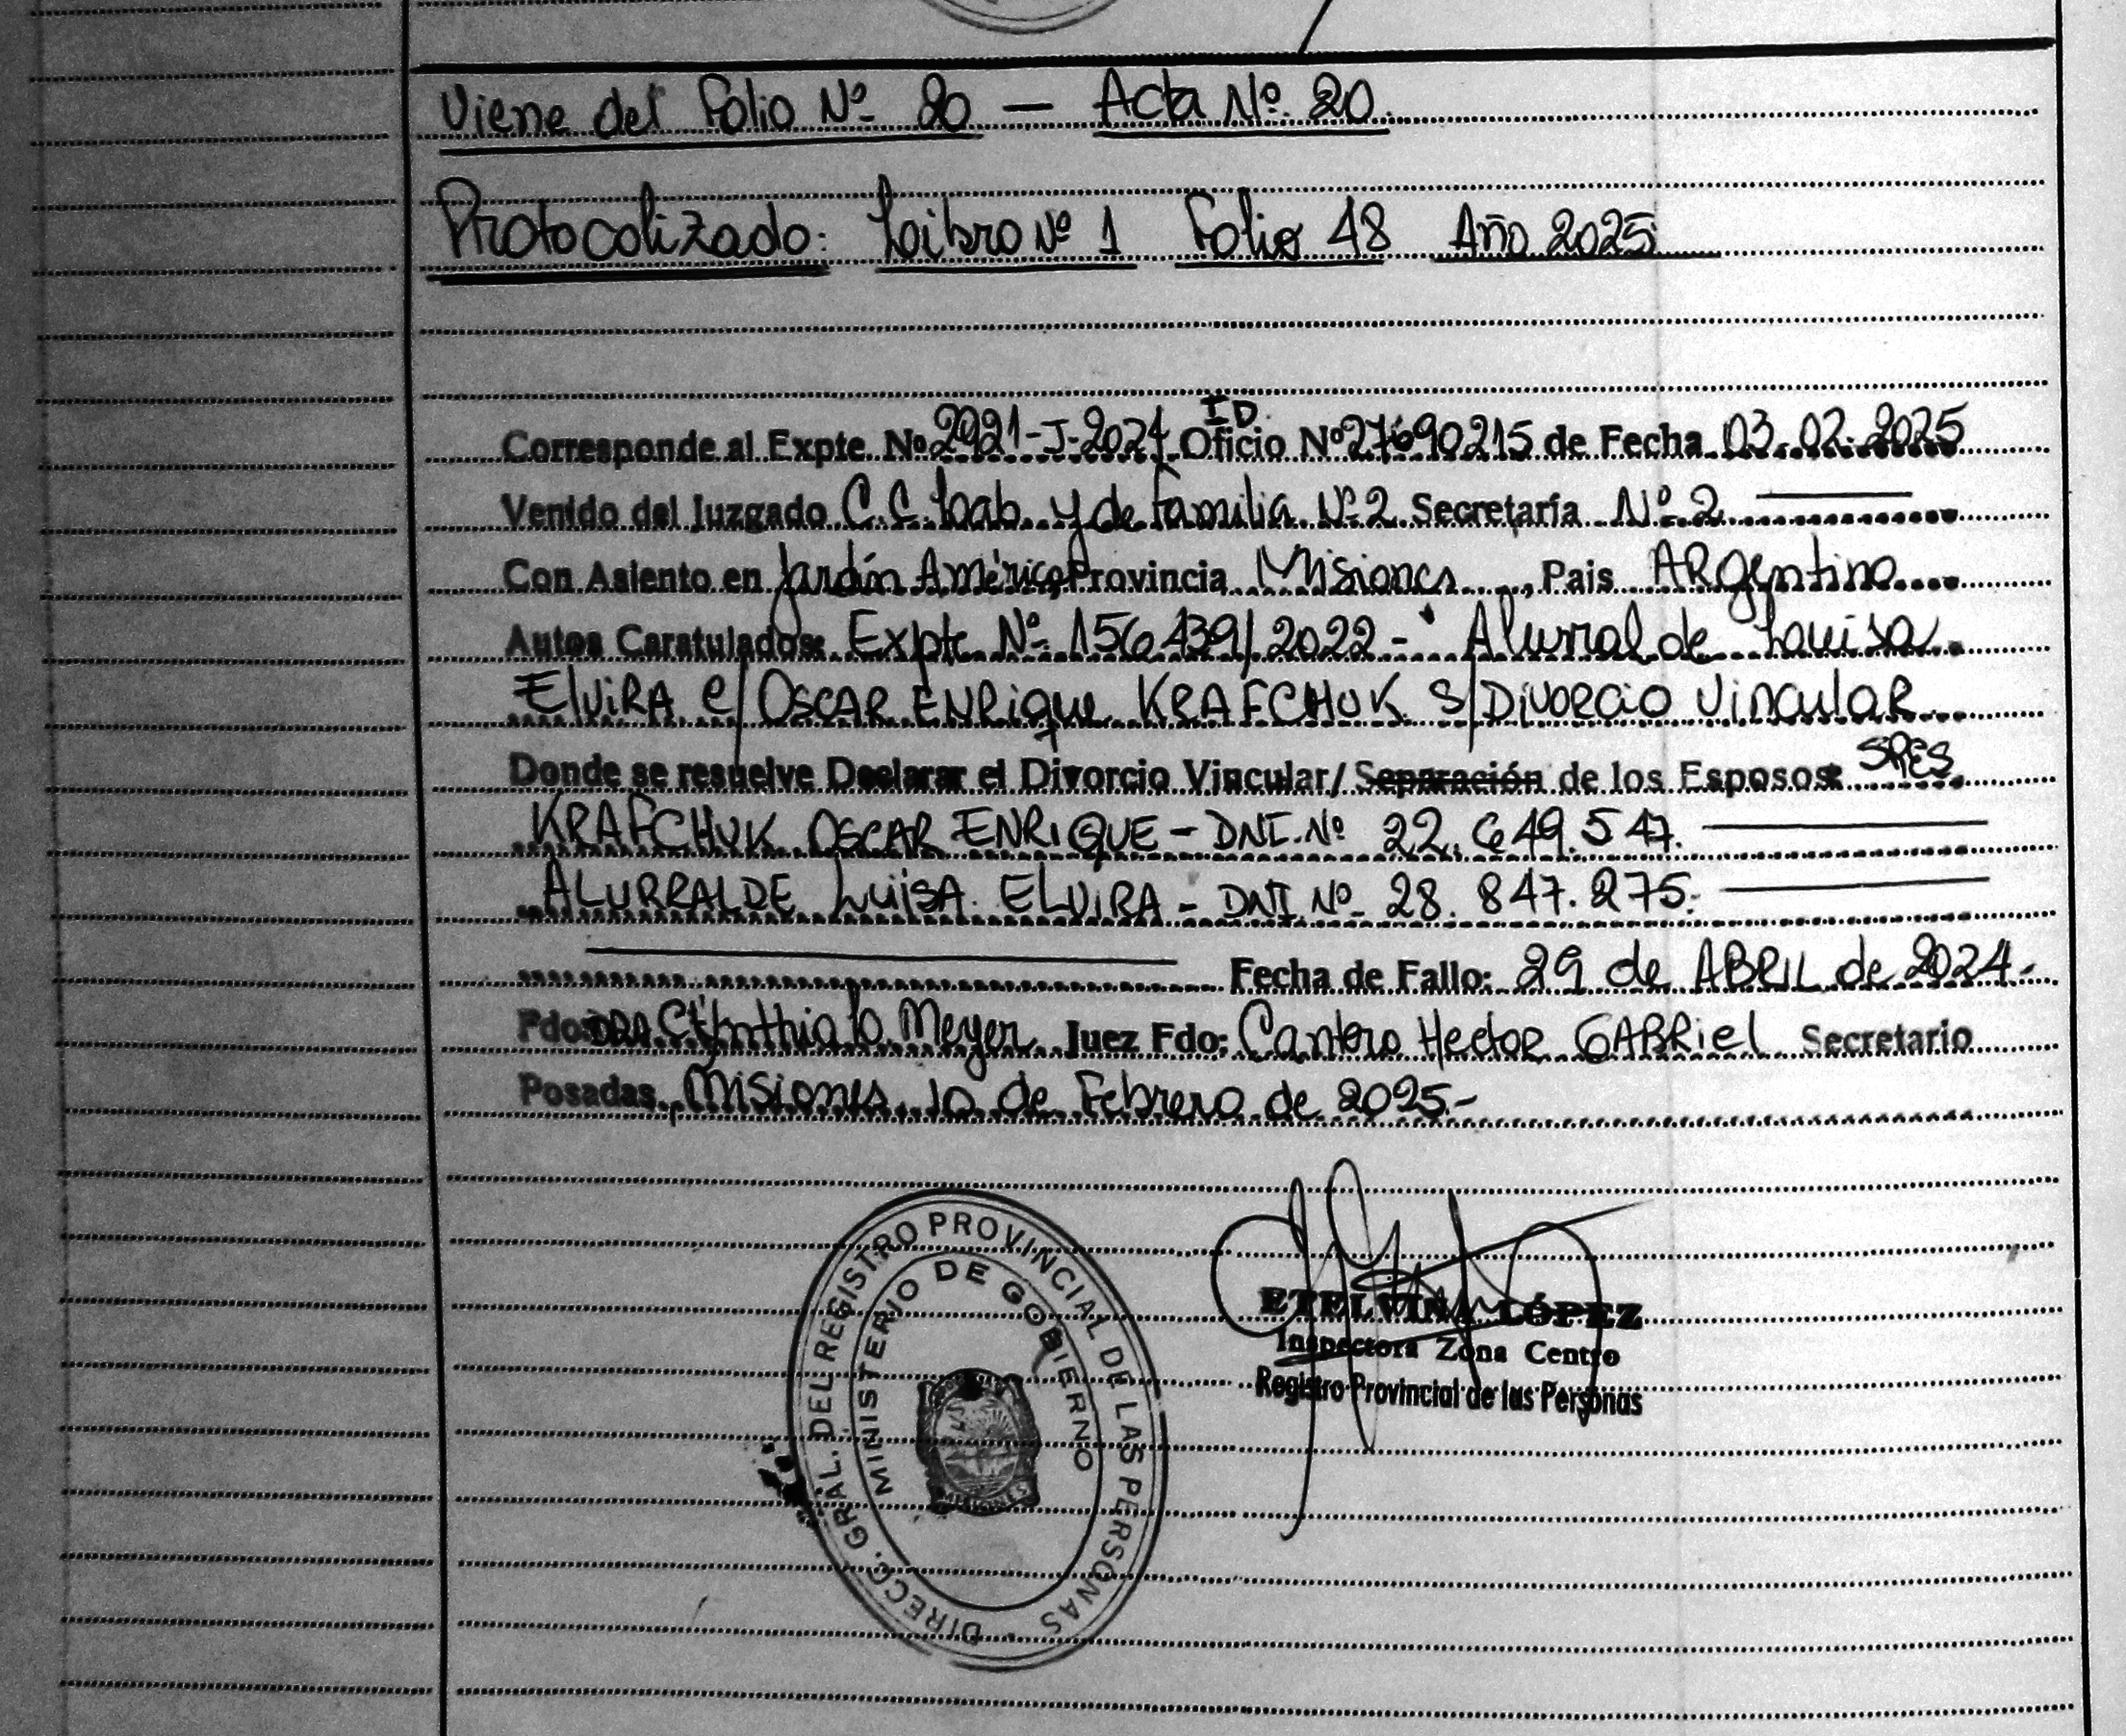 Viene del Folio Nº 20 — Acta Nº. 20.
Protocolizado: Libro Nº 1 Folio 48 Año 2025
ID
Corresponde al Expte. Nº 2921-J-2024 Oficio Nº 27690215 de Fecha 03.02.2025
Venido del Juzgado C.C. Lab. y de Familia Nº 2 Secretaría Nº 2
Con Asiento en Jardín América Provincia Misiones, Pais ARgentina
Autos Caratulados: Expte Nº 156439/2022 - Alurralde Louisa
ElviRA C/ OSCAR ENRique KRAFCHUK S/ Divorcio VinculaR
Donde se resuelve Declarar el Divorcio Vincular/ Separación de los Esposos: SRES
KRAFCHUK OSCAR ENRIQUE - DNI. Nº 22.649.547.
ALURRALDE LuiSA ELviRA - DNI Nº 28.847.275.
Fecha de Fallo: 29 de ABRIL de 2024.-
Fdo: DRA Meyer Juez Fdo: Cantero Hector GABRiel Secretario
Posadas, Misiones, 10 de Febrero de 2025.-
DIRECC. GRAL. DEL REGISTRO PROVINCIAL DE LAS PERSONAS
MINISTERIO DE GOBIERNO
MISIONES
ETELVINA LÓPEZ
Inspectora Zona Centro
Registro Provincial de las Personas